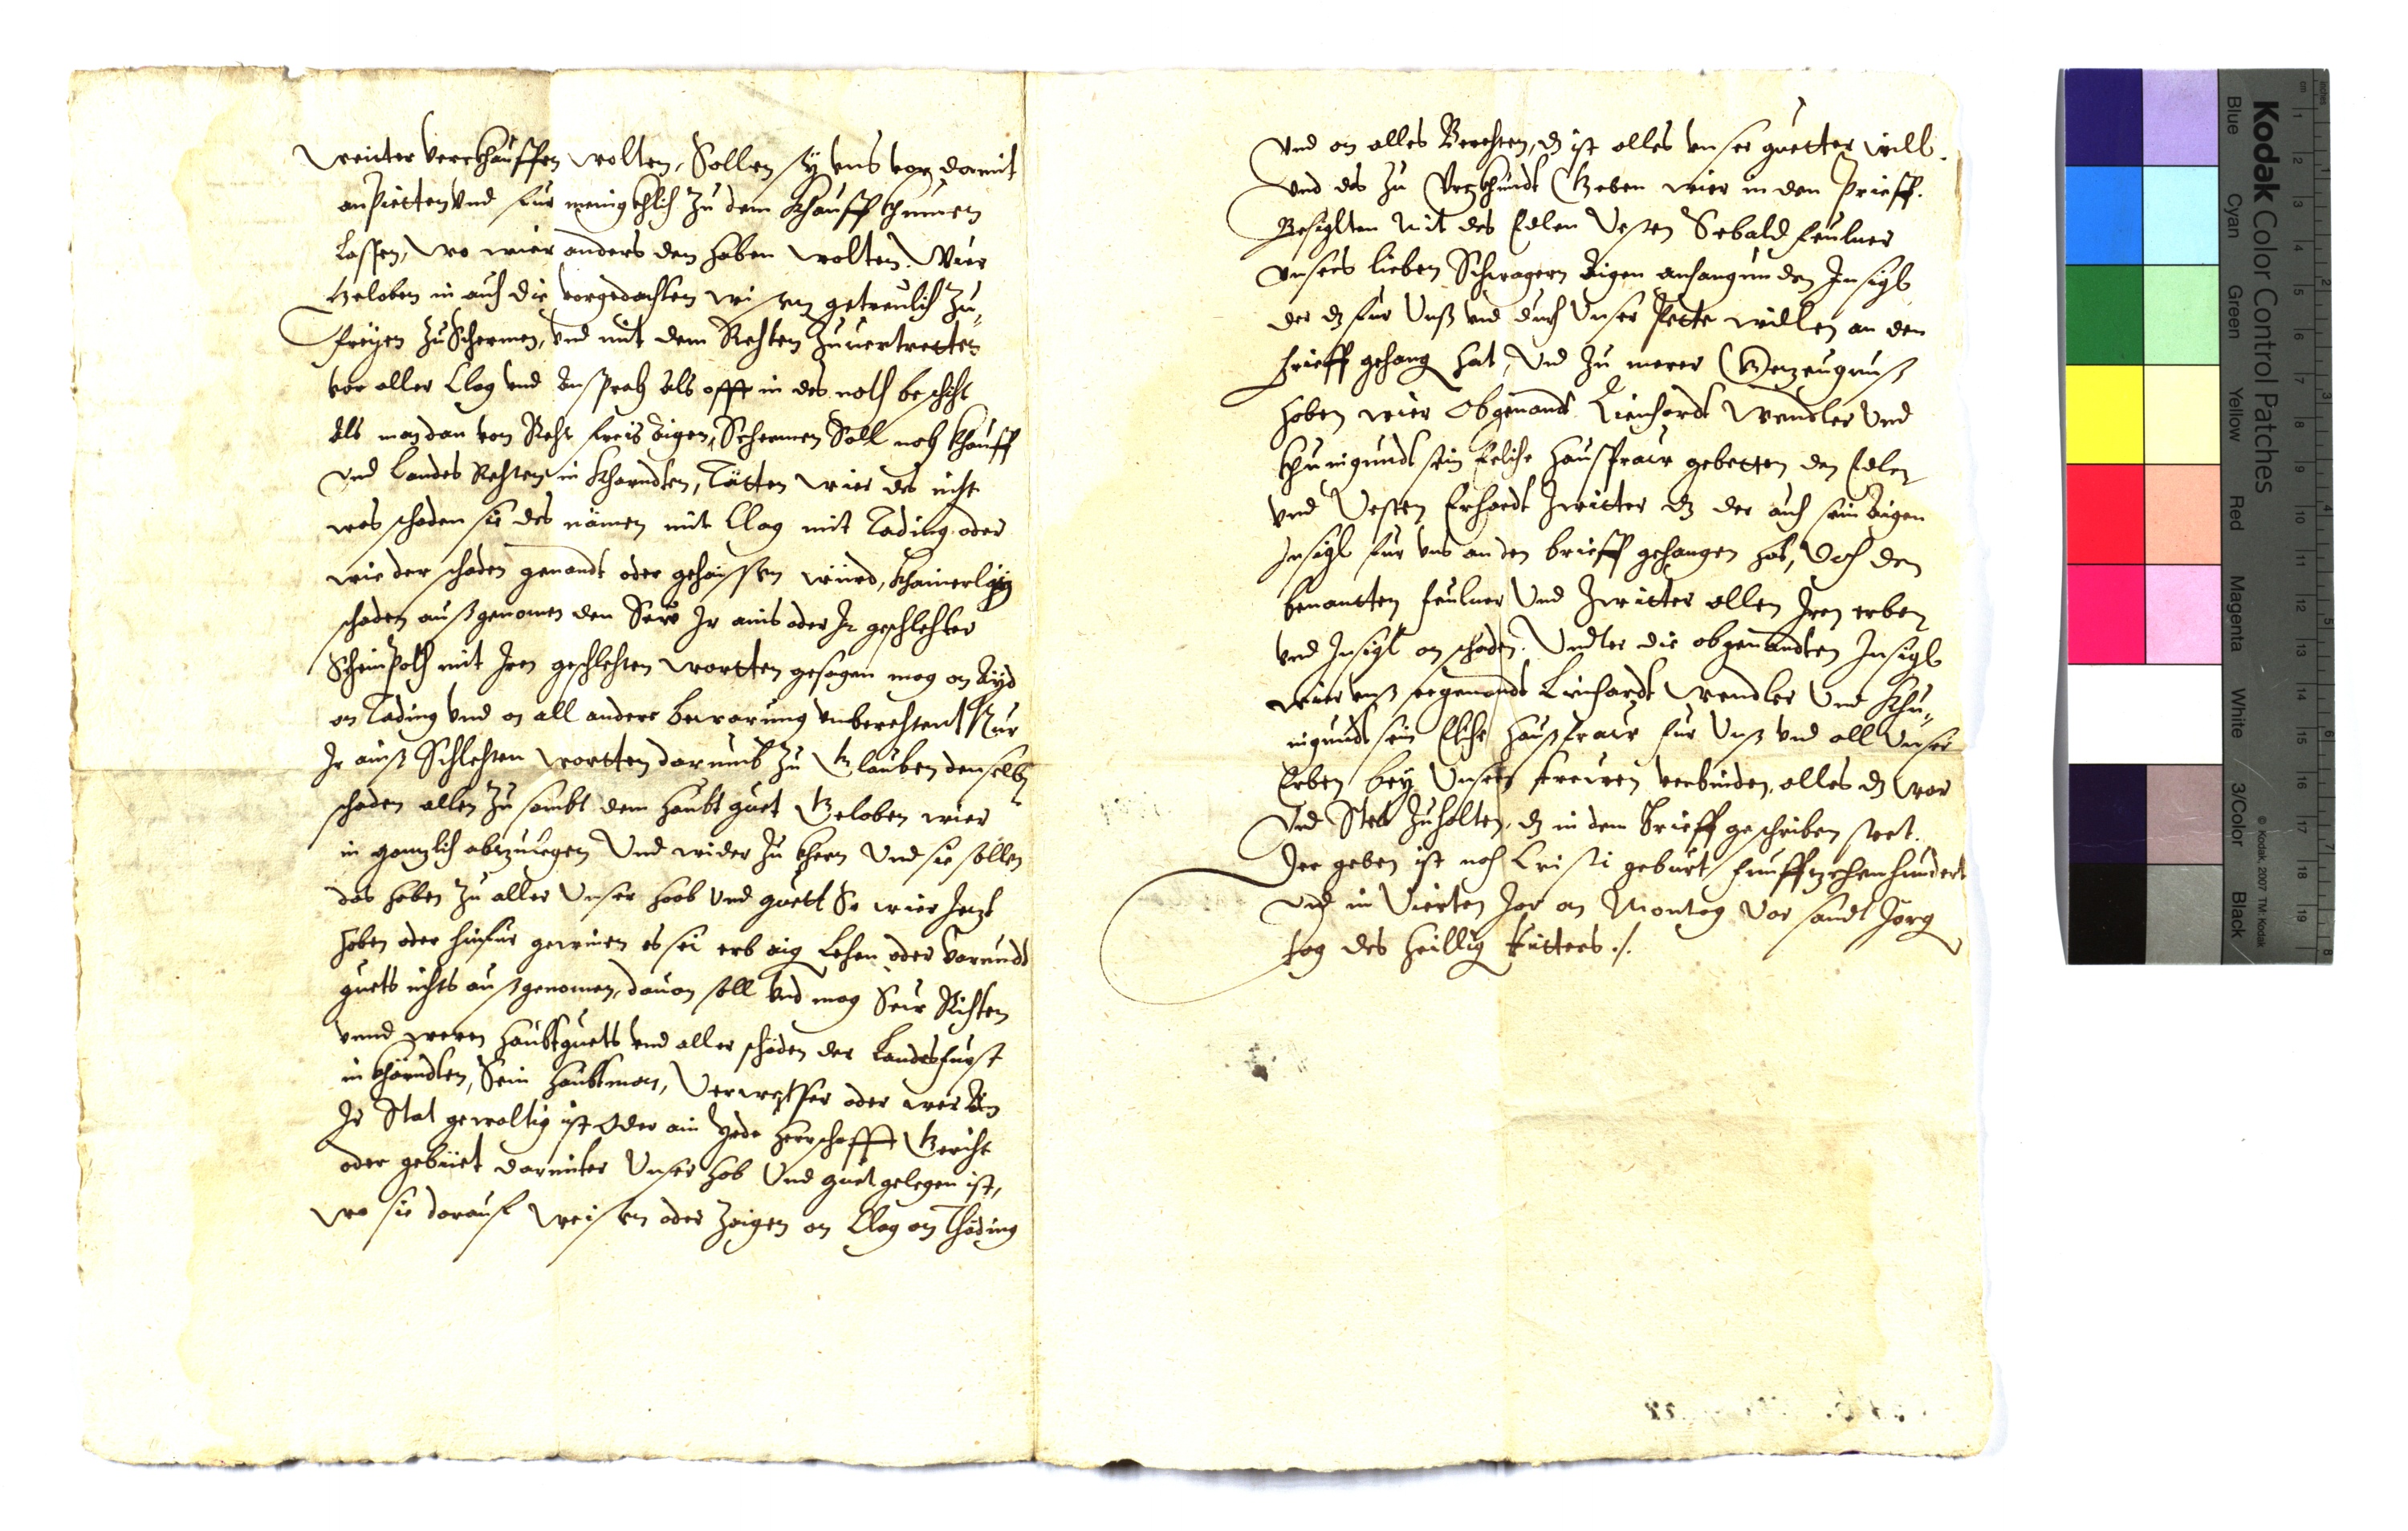 weiter verkhauffen wolten, Sollen sÿ uns vor damit
anPietten und fur menigkhlich zu dem khauff khumen
Lassen, wo wier anders den haben wolten. Wier
Geloben in auch die vorgedachten wisen getreulich zu,,
freÿen zuSchermen, und mit dem Rechten zuuertretten
vor aller Clag und Ansprach als offt in des noth beschicht
Als man dan von Recht freis Aigen, Schermen Soll nach khauff
und Landes Rechten in Kharndten, Tätten wier des nicht
was schaden sie des nämen mit Clag mit Tading oder
wie der schaden genandt oder gehaissen wurd, khainerlaÿ
schaden außgenomen den Ir ains oder Ir geschlechter
ScheinPoth mit Iren geschlechten wortten gesagen mag on Aÿd
on Tading und on all andere bewarung unberechtent Nur
Ir ainß Schlechten wortten darumb zu Glauben denselbn
schaden allen zu sambt dem haubt guet Geloben wier
in genzlich abzulegen Und wider zu khern Und sie sollen
das haben zu aller Unser haab und guett So wier Jezt
haben oder hinfur gewinen es sei erb aig Lehen oder varundt
guets nichts außgenomen, dauon soll und mag Richten
unnd weren haubtguets und aller schaden der Landsfurst
in khärndten, Sein haubtman, Verweser oder wer An
Ir Stat gewaltig ist Oder ain Jede herrschafft Gericht
oder gebiiet darinter Unser hab Und guet gelegen ist,
wo sie darauf weisen oder zaigen on Clag on Thäding
Und on alles Berechten, dz ist alles unser guetter will.
Und des zu Urkhundt Geben wier in den Prieff.
Besiglten Mit des Edlen Vesten Sebald feulner
Unsers lieben Schwagern Aigen anhangunden Insigl
der dz fur Unß und durch Unser Pette willen an den
brieff gehang hat, Und zu merer Gezeugnuß
haben wier Obgenandt Lienhardt Wendler Und
khunigundt sein Eeliche haußfraw gebetten den Edlen
und Vesten Erhardt Zwitter dz der auch sein Aigen
Insigl fur uns an den brieff gehangen hat, Doch den
benantten feulner Und Zwitter allen Iren erben
und Insigl on schaden. Undter die obgenandten Insigl
wier unß obgenandt Linhardt Wendler Und khu,,
nigundt sein Eliche haußfraw fur Unß und all Unser
Erben beÿ Unsern trewen verbinden, alles dz war
Und Stet zuhalten, dz in dem Brieff geschriben steet.
Der geben ist nach Cristi geburt funffzehenhundert
Und im Vierten Jar am Montag Vor sandt Jorg
tag des heillig Ritters ./.
Kodak Color Control Patches
Blue Cyan Green Yellow Red Magenta White 3/Color Black
© Kodak, 2007 TM: Kodak